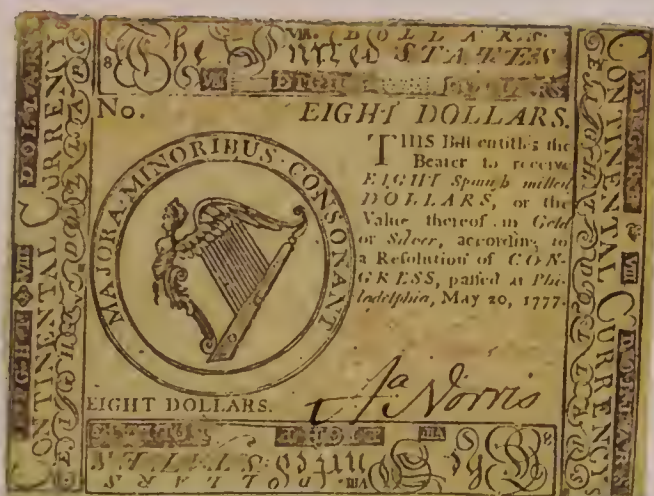 VIII. DOLLARS.
The United STATES
VIII EIGHT DOLLARS
No. EIGHT DOLLARS.
THIS Bill entitles the
Bearer to receive
EIGHT Spanish milled
DOLLARS, or the
Value thereof in Gold
or Silver, according to
a Resolution of CON-
GRESS, passed at Phi-
ladelphia, May 20, 1777.
MAJORA·MINORIBUS·CONSONANT
EIGHT DOLLARS.
Ja Norris
CONTINENTAL CURRENCY
EIGHT VIII DOLLARS
CONTINENTAL CURRENCY
EIGHT VIII DOLLARS